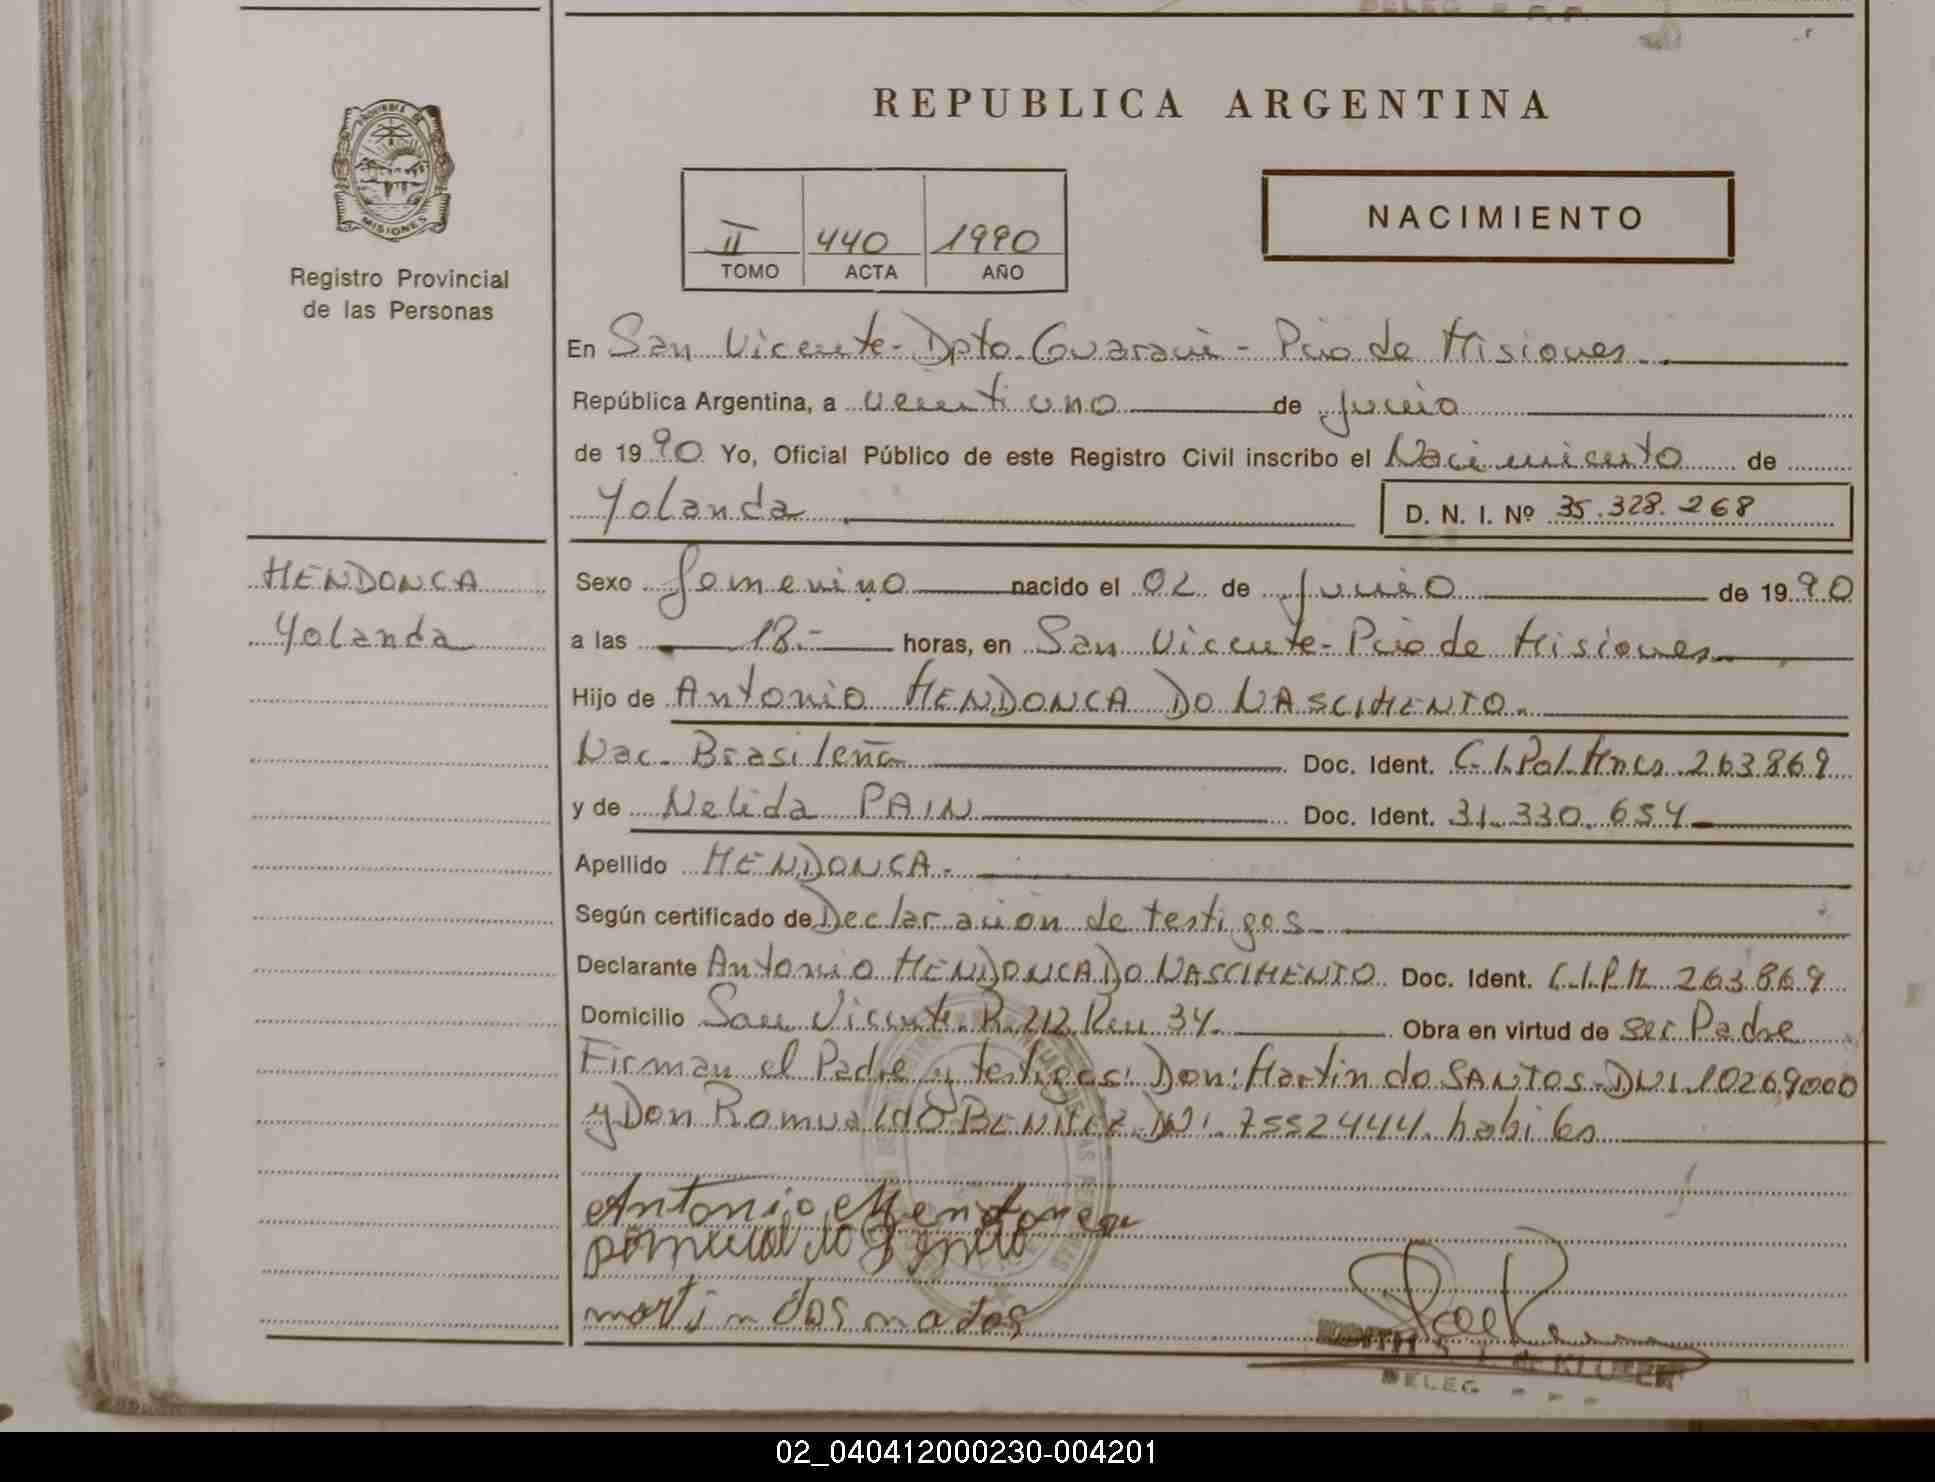 REPUBLICA ARGENTINA
PROVINCIA DE
MISIONES
Registro Provincial
de las Personas
II 440 1990
TOMO ACTA AÑO
NACIMIENTO
En San Vicente - Dpto. Guaraní - Pcia de Misiones
República Argentina, a veinti uno de Junio
de 1990 Yo, Oficial Público de este Registro Civil inscribo el Nacimiento de
Yolanda D. N. I. Nº 35.328.268
MENDONCA
Yolanda
Sexo femenino nacido el 02 de Junio de 1990
a las 18.- horas, en San Vicente - Pcia de Misiones
Hijo de Antonio MENDONCA DO NASCIMENTO.
Nac. Brasileña Doc. Ident. C.I. Pol. Mnes 263.869
y de Nelida PAIN Doc. Ident. 31.330.654
Apellido MENDONCA.
Según certificado de Declaración de testigos
Declarante Antonio MENDONCA DO NASCIMENTO. Doc. Ident. C.I.P.M. 263.869
Domicilio San Vicente. R. 212 Km 34. Obra en virtud de ser Padre
Firman el Padre y testigos: Don: Martin do SANTOS - DNI. 10269000
y Don Romualdo BENITEZ DNI. 7552444. habiles
Antonio Mendonca
martin dos
EDITH de
DELEG
02_040412000230-004201